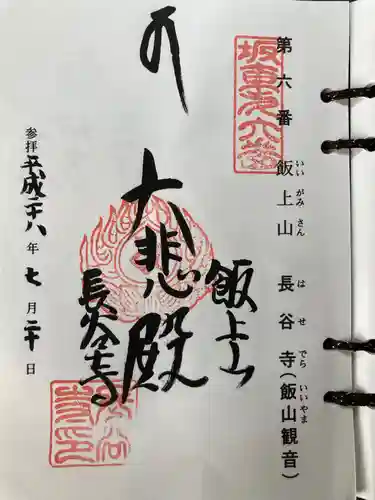 第六番 飯上山 長谷寺(飯山観音)
いいがみさん はせでら いいやま
坂東第六番
飯上山
大悲殿
長谷寺
参拝 平成二十八年七月二十日